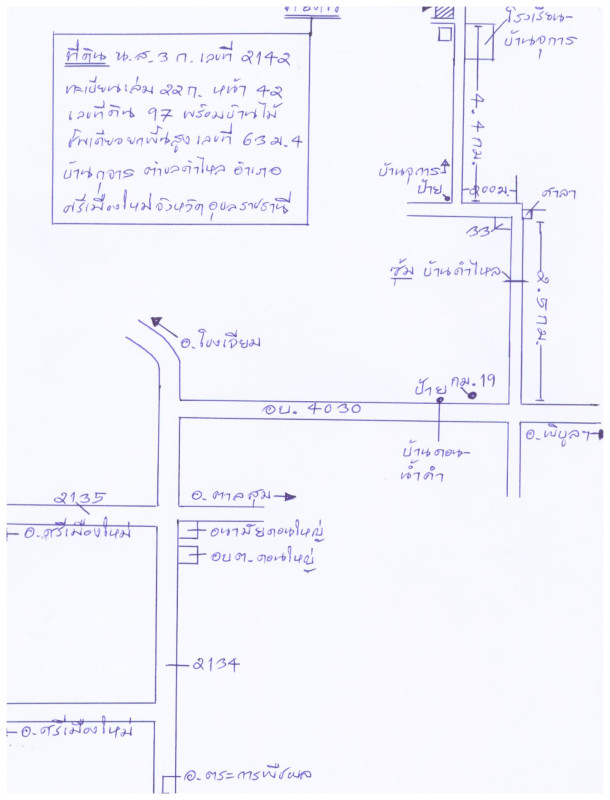 ที่ดิน น.ส.3 ก. เลขที่ 2142
ทะเบียนเล่ม 22 ก. หน้า 42
เลขที่ดิน 97 พร้อมบ้านไม้
ชั้นเดียวยกพื้นสูง เลขที่ 63 ม.4
ตำบลคำไหล อำเภอ
ศรีเมืองใหม่ จังหวัดอุบลราชธานี
โรงเรียน-
บ้านจุการ
4.4 กม.
บ้านจุการ
ป้าย
200 ม.
ศาลา
33
ซุ้ม บ้านคำไหล
2.5 กม.
อ.โขงเจียม
ป้าย กม.19
อบ. 4030
อ.พิบูลฯ
บ้านดอน-
น้ำคำ
2135
อ.ตาลสุม
อ.ศรีเมืองใหม่
อนามัยดอนใหญ่
อบต.ดอนใหญ่
2134
อ.ศรีเมืองใหม่
อ.ตระการพืชผล